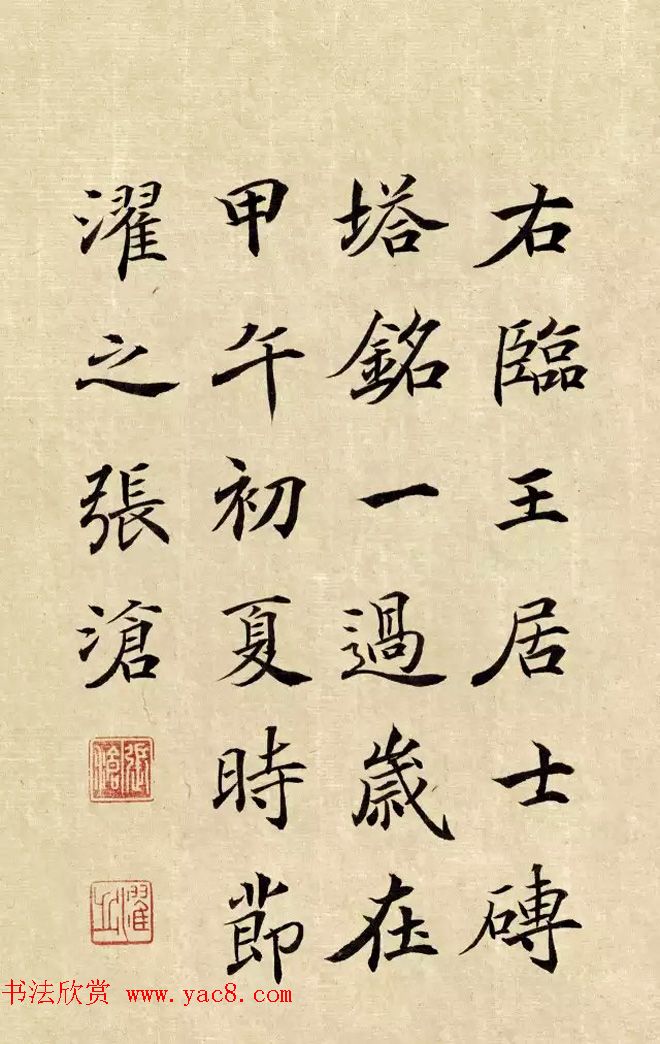 右臨王居士磚
塔銘一過歲在
甲午初夏時節
濯之張滄
張滄
濯之
书法欣赏 www.yac8.com